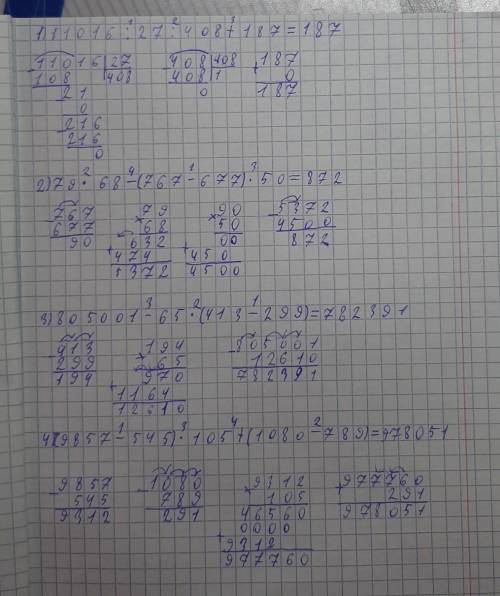 1) 11016 : 27 : 408 + 187 = 187
11016 | 27
108 | 408
21
0
216
216
0
408 | 408
408 | 1
0
+ 187
0
187
2) 79 · 68 - (767 - 677) · 50 = 872
- 767
677
90
× 79
68
632
+ 474
5372
× 90
50
00
+ 450
4500
- 5372
4500
872
3) 805001 - 65 · (413 - 299) = 782391
- 413
299
194
× 194
65
970
+ 1164
12610
- 805001
12610
782391
4) (9857 - 545) · 105 + (1080 - 789) = 978051
- 9857
545
9312
- 1080
789
291
× 9312
105
46560
0000
+ 9312
977760
+ 977760
291
978051